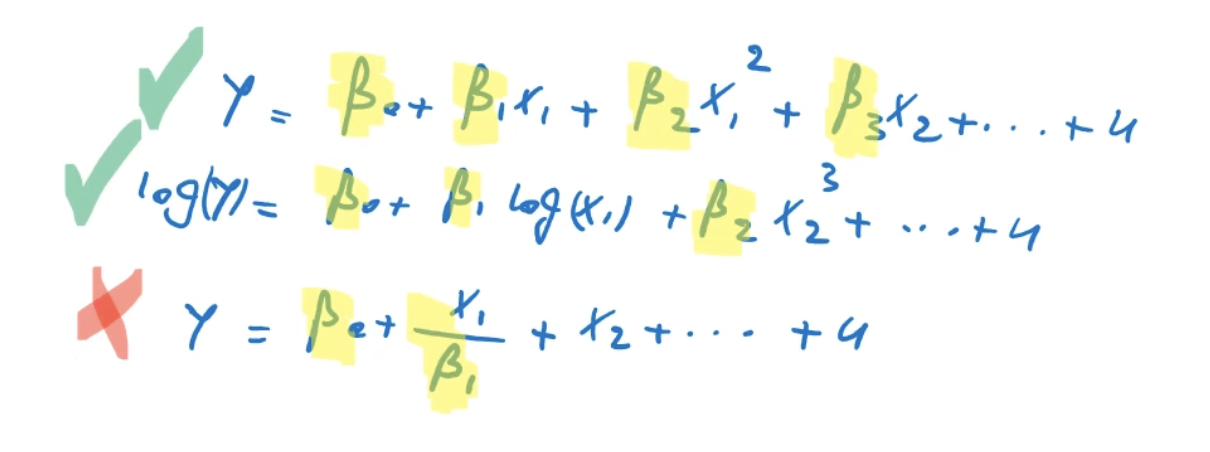 Y = β₀ + β₁x₁ + β₂x₁² + β₃x₂ + ... + u
log(Y) = β₀ + β₁ log(x₁) + β₂ x₂³ + ... + u
Y = β₀ + x₁/β₁ + x₂ + ... + u